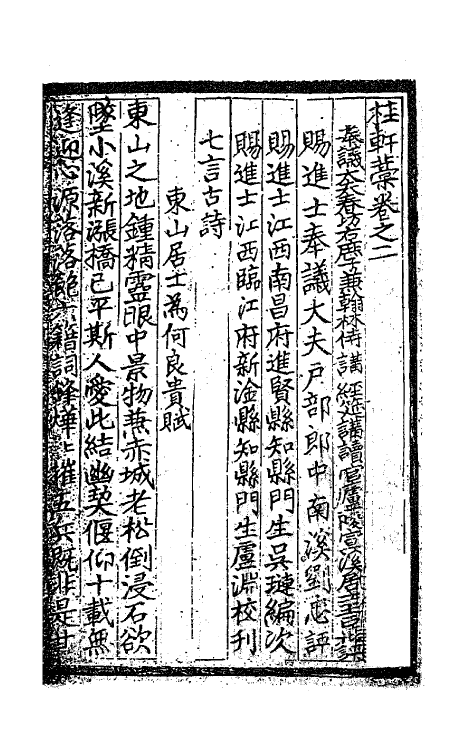 桂軒藁卷之二
奉議大夫春坊右庶子兼翰林侍講經筵講讀官廬陵
賜進士奉議大夫戶部郎中南溪劉忠評
賜進士江西南昌府進賢縣知縣門生吳璉編次
賜進士江西臨江府新淦縣知縣門生盧淵校刊
七言古詩
東山居士為何良貴賦
東山之地鍾精靈眼中景物無赤城老松倒浸石欲
墜小溪新漲橋已平斯人愛此結幽契偃仰十載無
逢迎心源落落鮑六籍詞鋒燁燁摧五兵既非是